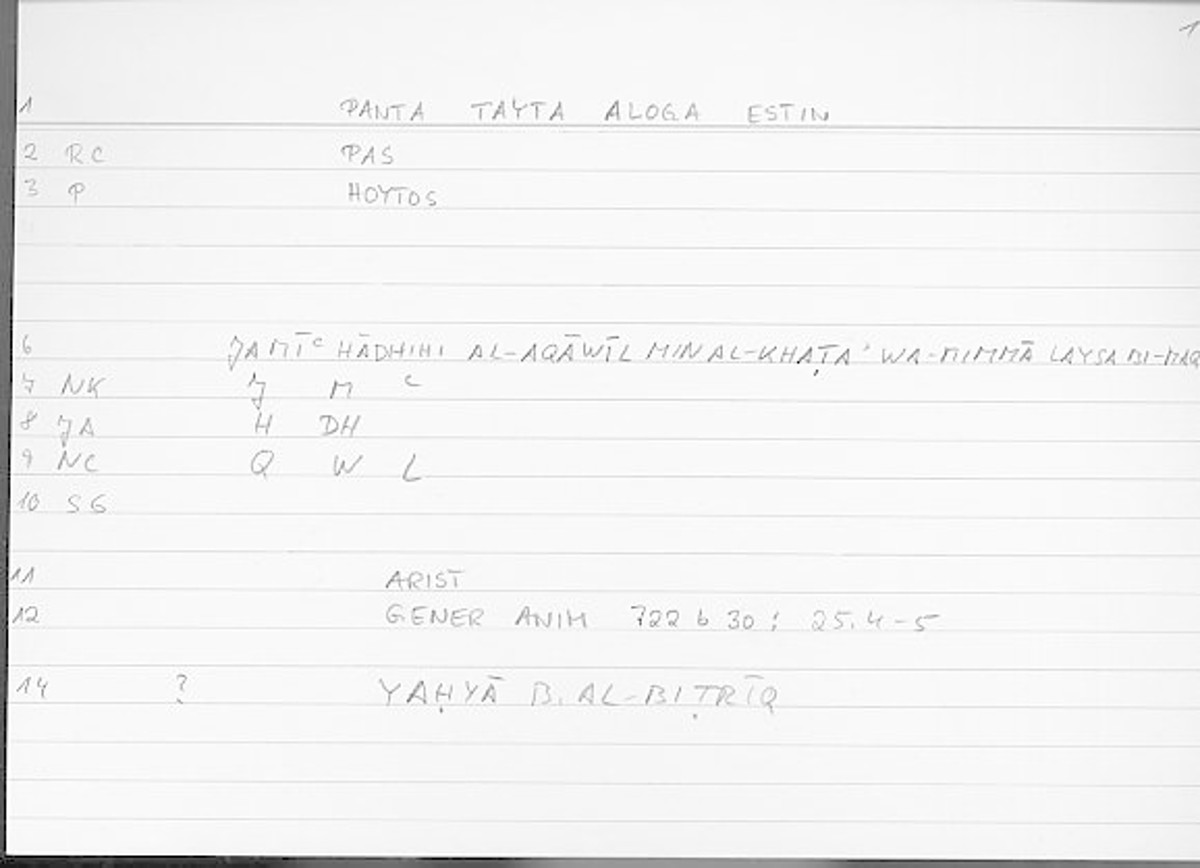 1
1 PANTA TAYTA ALOGA ESTIN
2 RC PAS
3 P HOYTOS
6 JAMĪʿ HĀDHIHI AL-AQĀWĪL MIN AL-KHAṬAʾ WA-MIMMĀ LAYSA BI-MAQ
7 NK J M ʿ
8 JA H DH
9 NC Q W L
10 SG
11 ARIST
12 GENER ANIM 722 b 30 ; 25.4-5
14 ? YAḤYĀ B. AL-BIṬRĪQ